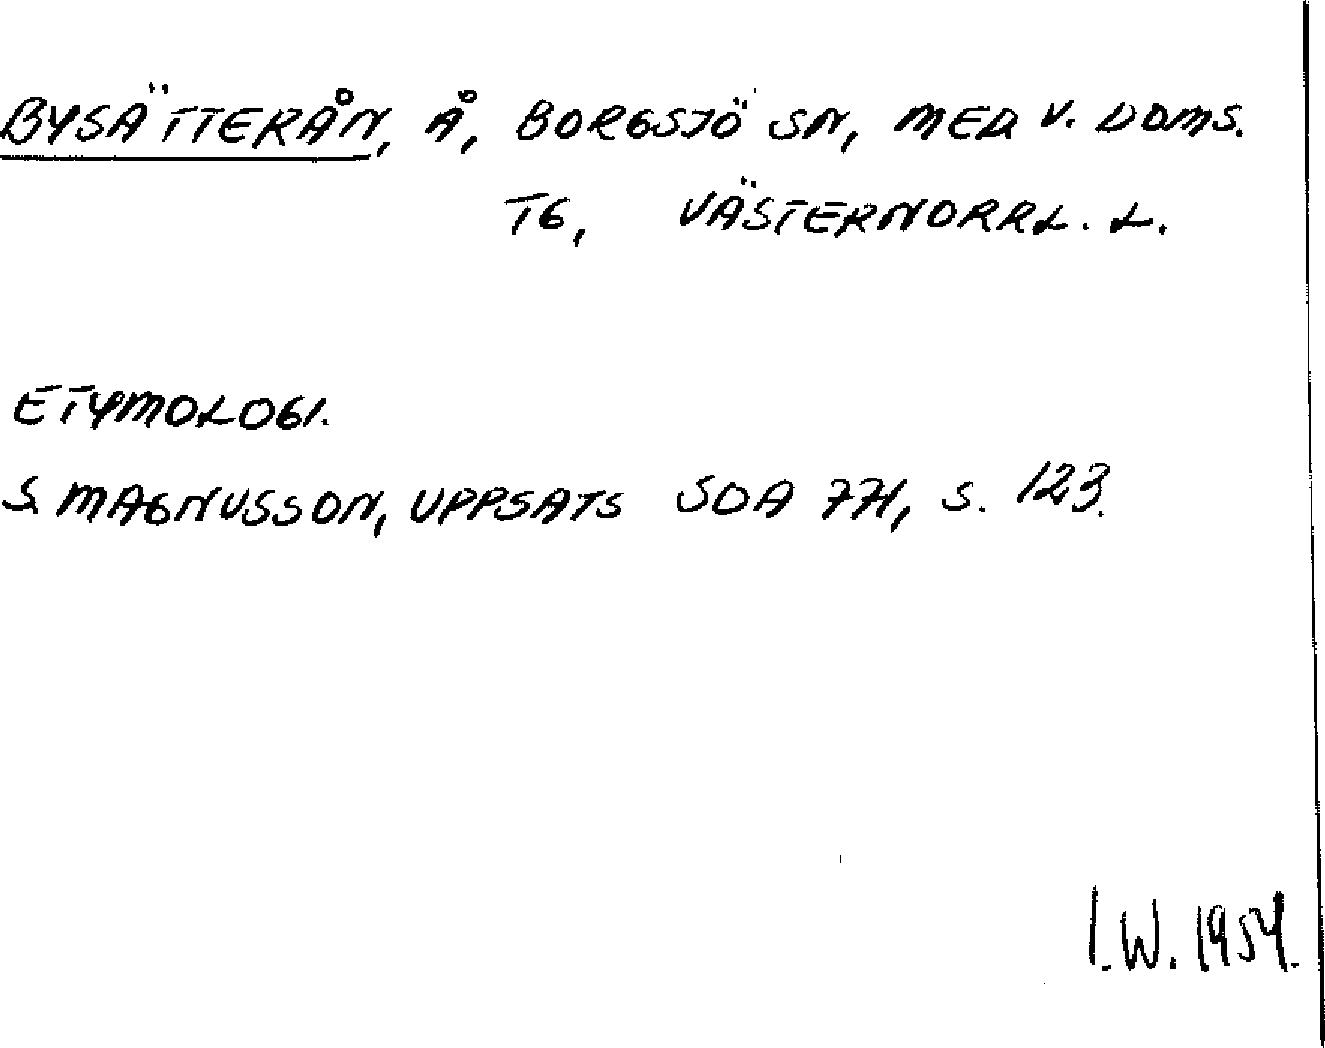 BYSÄTTERÅN, Å, BORGSJÖ SN, MED V. DOMS.
TG, VÄSTERNORRL. L.
ETYMOLOGI.
S. MAGNUSSON, UPPSATS SOA 771, S. 123.
I.W. 1954.